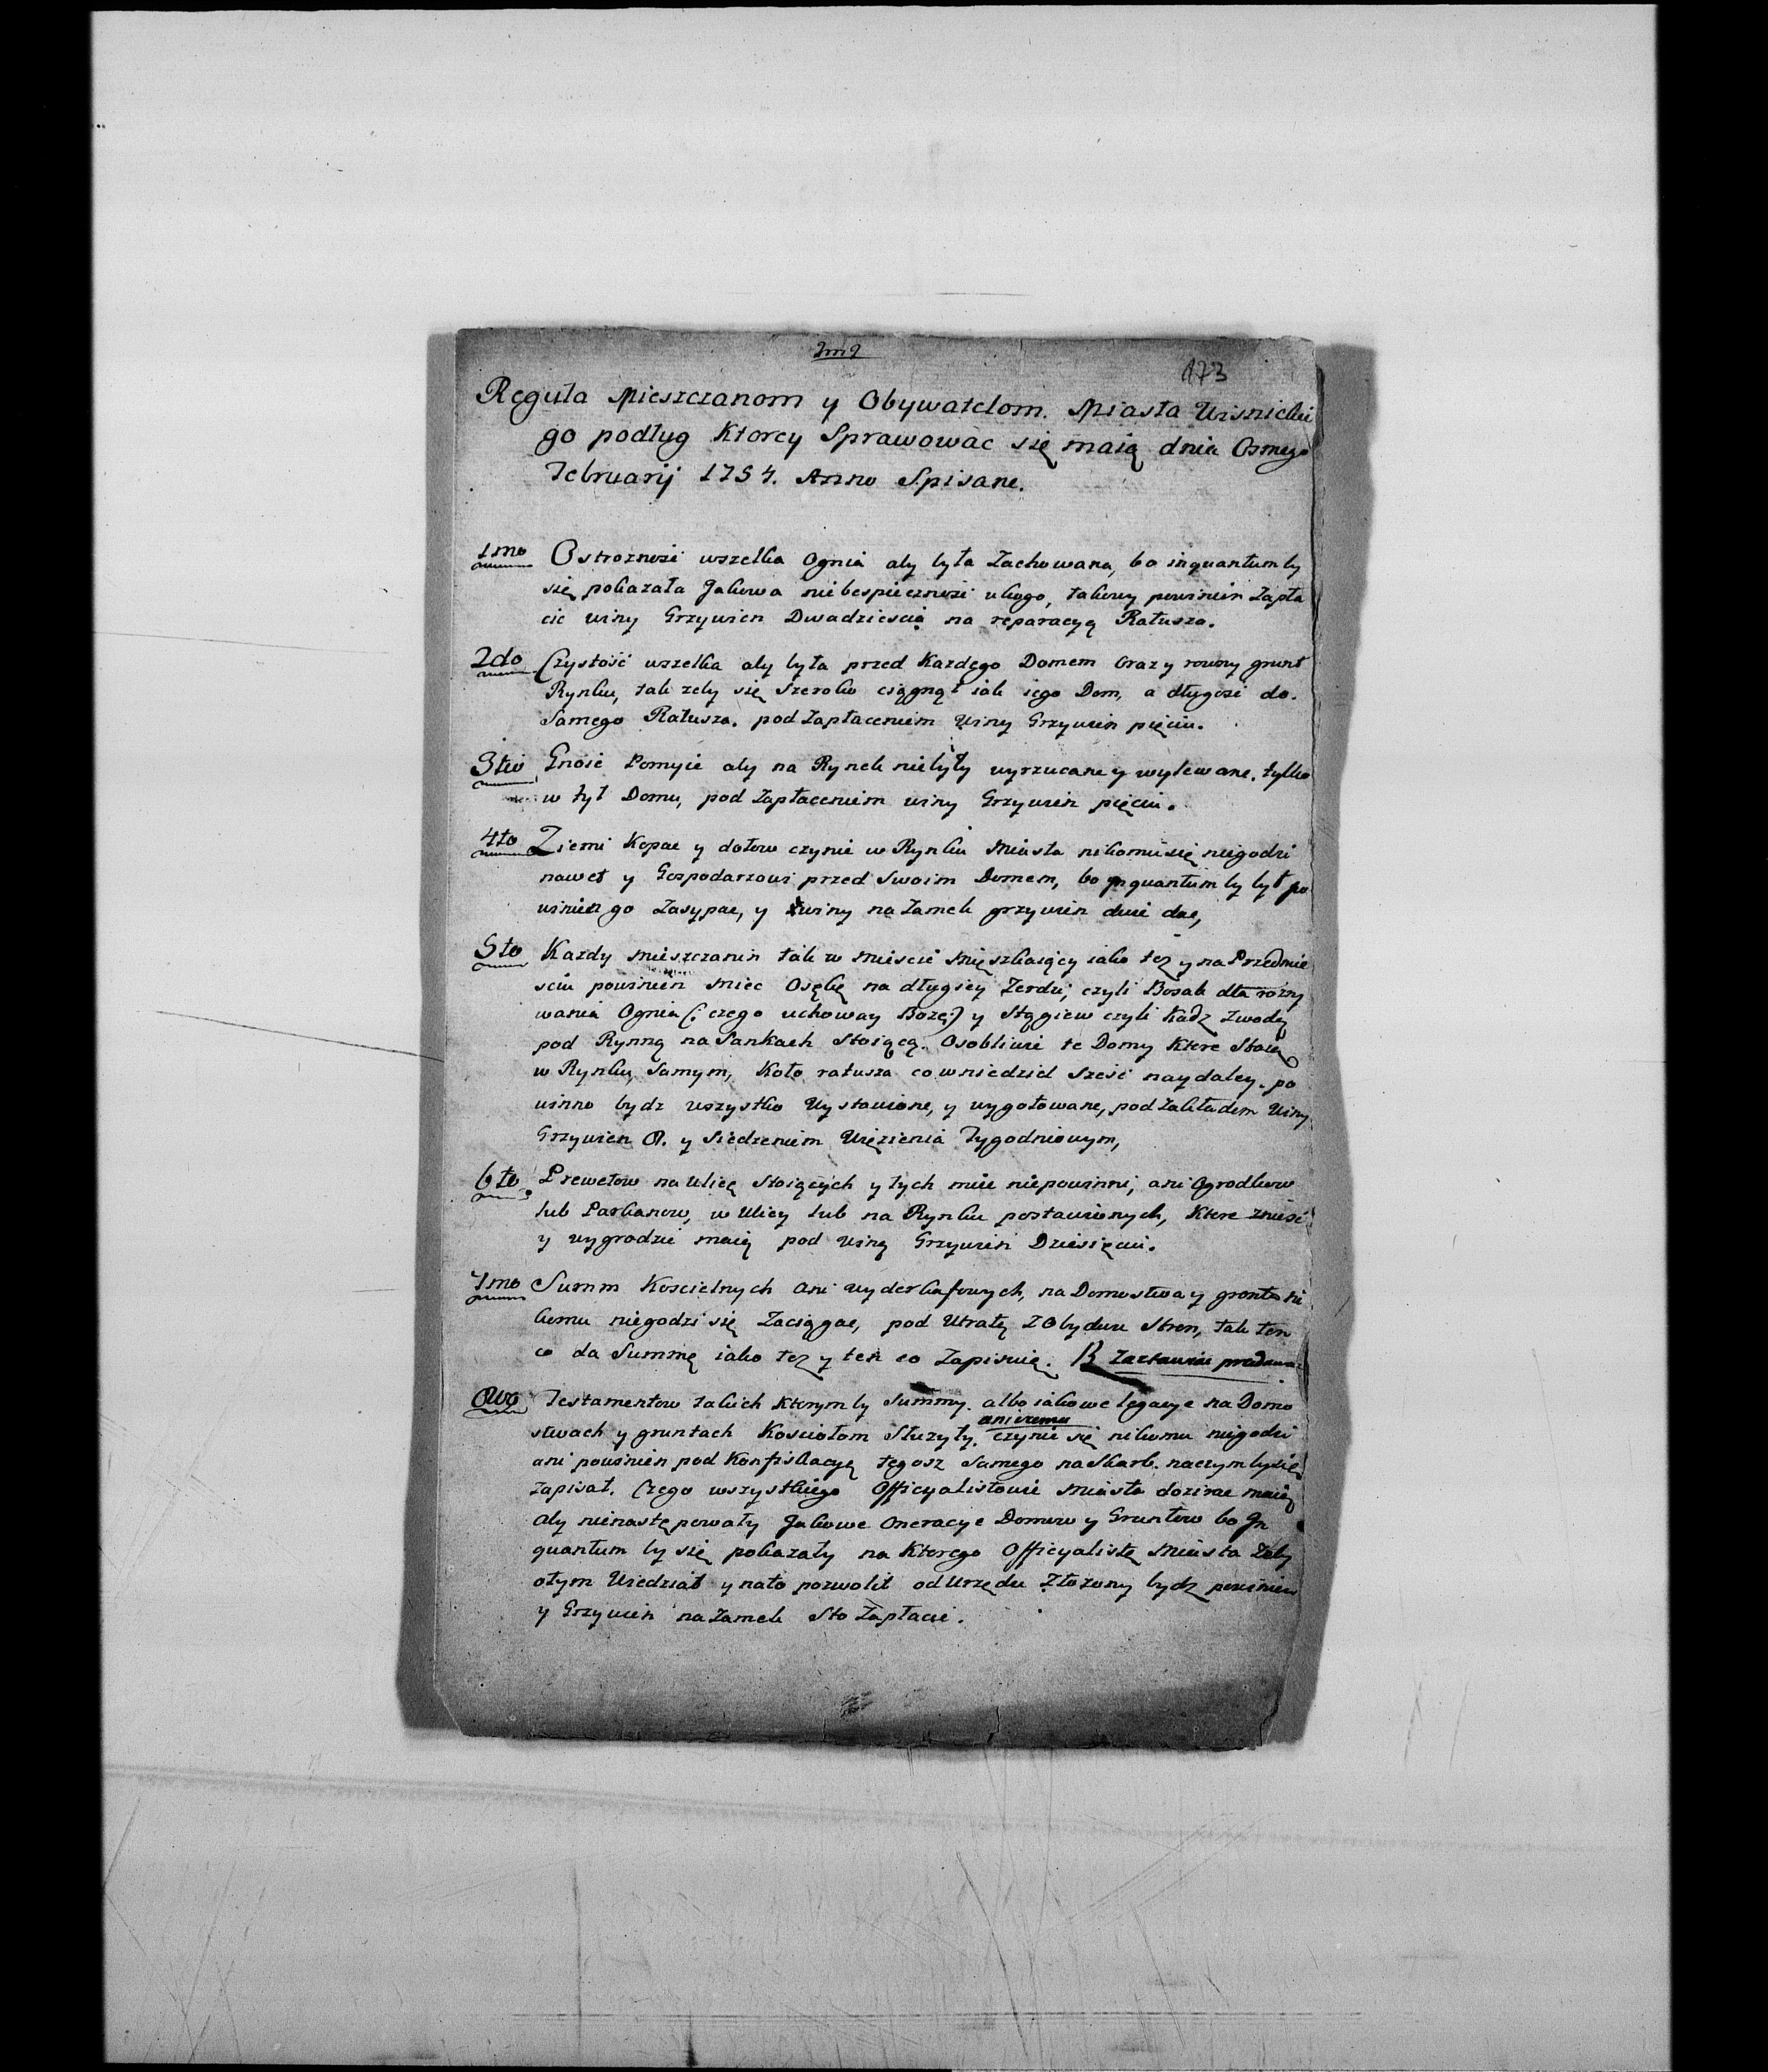 173
Reguła Mieszczanom y Obywatelom. Miasta Wisnickie
go podług Ktorey Sprawowac się maią dnia Osmego
Februarij 1754. Anno Spisane.
1mo Ostroznosc wszelka Ognia aby była Zachowana, bo inquantumby
się pokazała Jakowa niebespiecznosc ukogo, takowy powinien Zapła
cic winy Grzywien Dwadziescia na reparacyą Ratusza.
2do Czystość wszelka aby była przed Kazdego Domem Oraz y rowny grunt
Rynku, tak zeby się Szeroko ciągnął iak iego Dom, a długosc do.
Samego Ratusza. pod Zapłaceniem Winy Grzywien pięciu.
3tio Gnoie Pomyie aby na Rynek niebyły wyrzucane y wylewane. tylko
w tył Domu, pod Zapłaceniem winy Grzywien pięciu.
4to Ziemi Kopac y dołow czynic w Rynku Miasta nikomu się niegodzi
nawet y Gospodarzowi przed Swoim Domem, bo Jnquantum by był po
winien go Zasypac, y winy na Zamek grzywien dwie dac,
5to Kazdy Mieszczanin tak w Miescie Mięszkaiący iako tez y na Przedmie
sciu powinien Miec Osękę na długiey Zerdzi, czyli Bosak dla rozry
wania Ognia (: czego uchoway Boze:) y Stągiew czyli Kadz Zwodą
pod Rynną na Sankach Stoiącą. Osobliwie te Domy Ktore Stoią
w Rynku Samym, Koło ratusza co wniedziel Szesc naydaley. po
winno bydz wszystko Wystawione, y wygotowane, pod Zakładem Winy
Grzywien 8. y Siedzeniem Więzienia Tygodniowym,
6to Prewetow na Ulicę Stoiących y tych miec niepowinni, ani Ogrodkow
lub Parkanow, w Ulicy lub na Rynku postawionych, Ktore zniesć
y wygrodzic maią pod Winą Grzywien Dziesięciu.
7mo Summ Koscielnych ani wyderkafowych, na Domostwa y gronta ni
komu niegodzi się Zaciągac, pod Utratą ZObydwu Stron, tak ten
co da Summę iako tez y ten co Zapisuię.
8vo Testamentow takich Ktorymby Summy. albo iakowe legacye na Domo
stwach y gruntach Kosciołom Słuzyły. czynic się nikomu niegodzi
ani powinien pod Konfiskacyą tegosz Samego na Skarb. naczymbysię
Zapisał. Czego wszystkiego Officyalistowie Miasta dozirac maią
aby nienastępowały Jakowe Oneracye Domow y Gruntow bo Jn
quantum by się pokazały na Ktorego Officyalistę Miasta Zeby
otym Wiedział y nato pozwolił od Urzędu Złozony bydz powinien
y Grzywien na Zamek Sto Zapłacic.